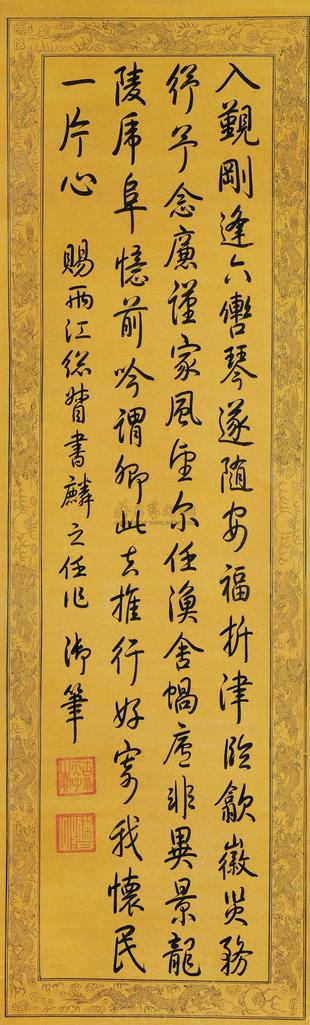 入覲剛逢六轡琴遂隨安福析津臨歙徽災務
紓予念廉謹家風望尔任漁舍蝸廬非異景龍
陵虎阜憶前吟謂卿此去推行好寄我懷民
一片心 賜兩江総督書麟之任作 御筆